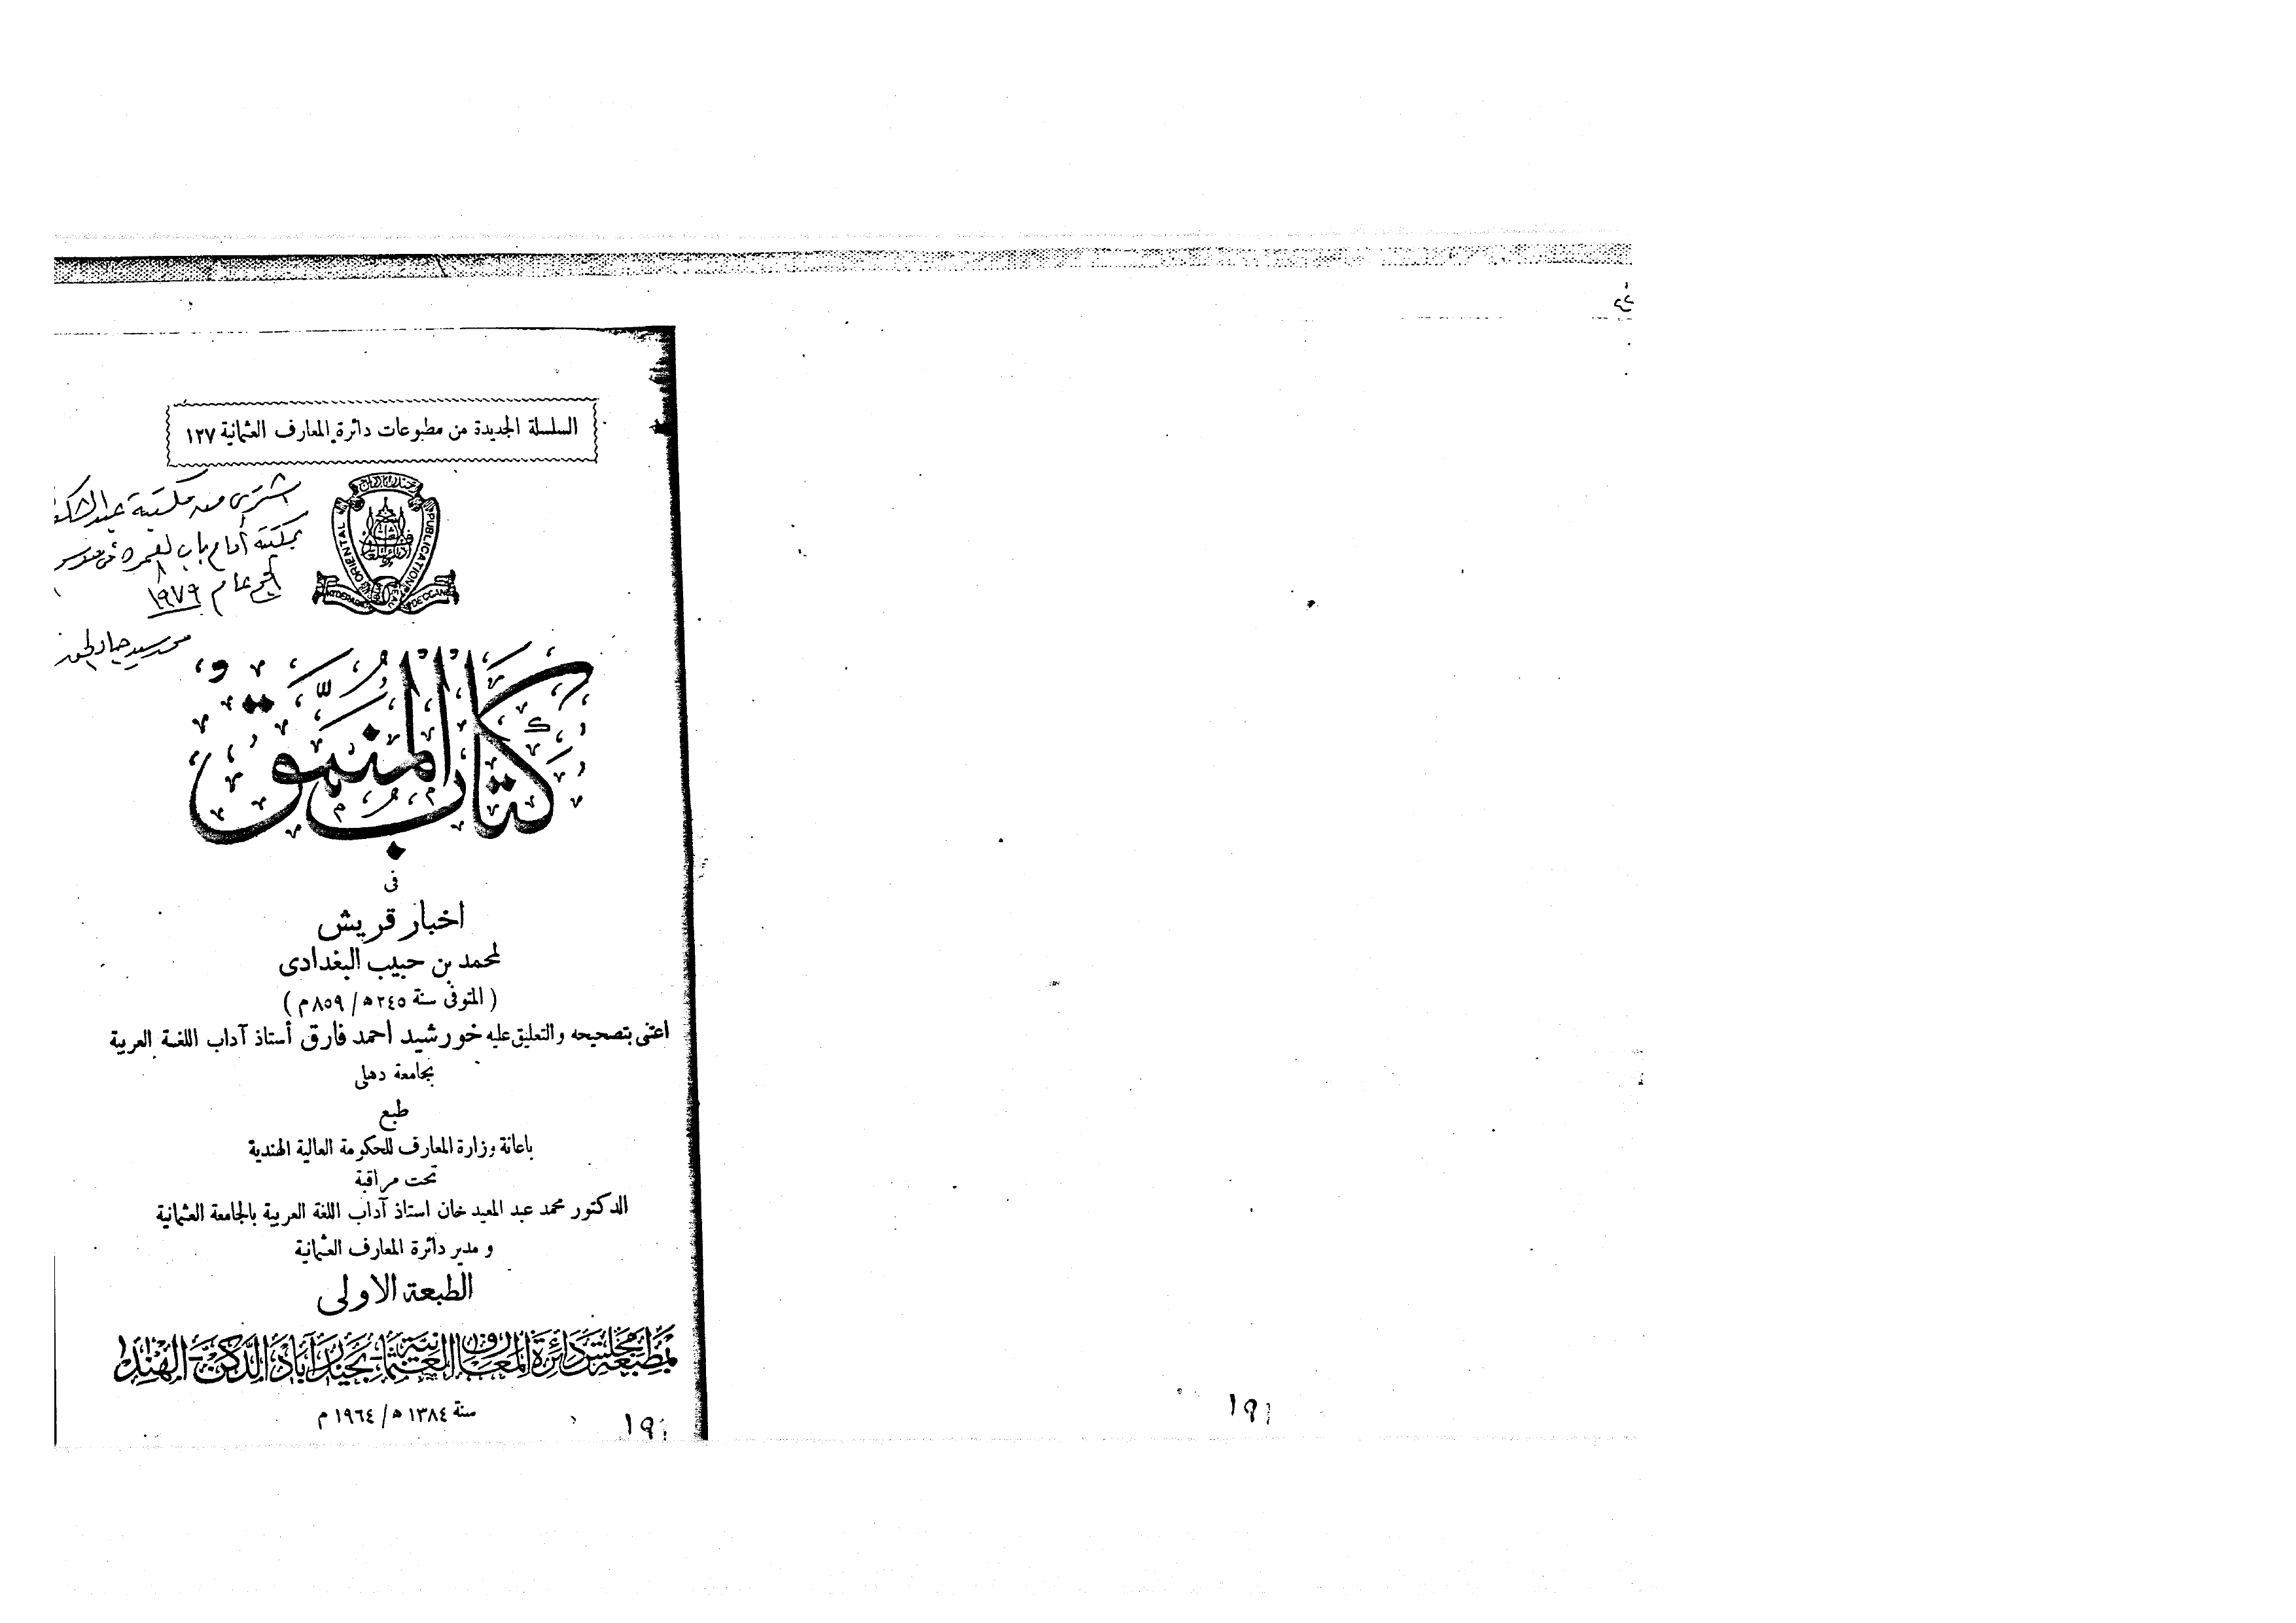 السلسلة الجديدة من مطبوعات دائرة المعارف العثمانية ١٢٧
اشترى من مكتبة عبد الشكو
بمكتبة أمام باب العمرة في موسم
الحج عام ١٩٧٩
محمد سيد جاد الحق
ORIENTAL PUBLICATION
كِتَابُ الْمُنَمَّقِ
فى
اخبار قريش
لمحمد بن حبيب البغدادى
( المتوفى سنة ٢٤٥ ه / ٨٥٩ م )
اعتنى بتصحيحه والتعليق عليه خورشيد احمد فارق أستاذ آداب اللغة العربية
بجامعة دهلى
طبع
باعانة وزارة المعارف للحكومة العالية الهندية
تحت مراقبة
الدكتور محمد عبد المعيد خان استاذ آداب اللغة العربية بالجامعة العثمانية
و مدير دائرة المعارف العثمانية
الطبعة الاولى
بمطبعة مجلس دائرة المعارف العثمانية بحيدرآباد الدكن الهند
سنة ١٣٨٤ ه / ١٩٦٤ م